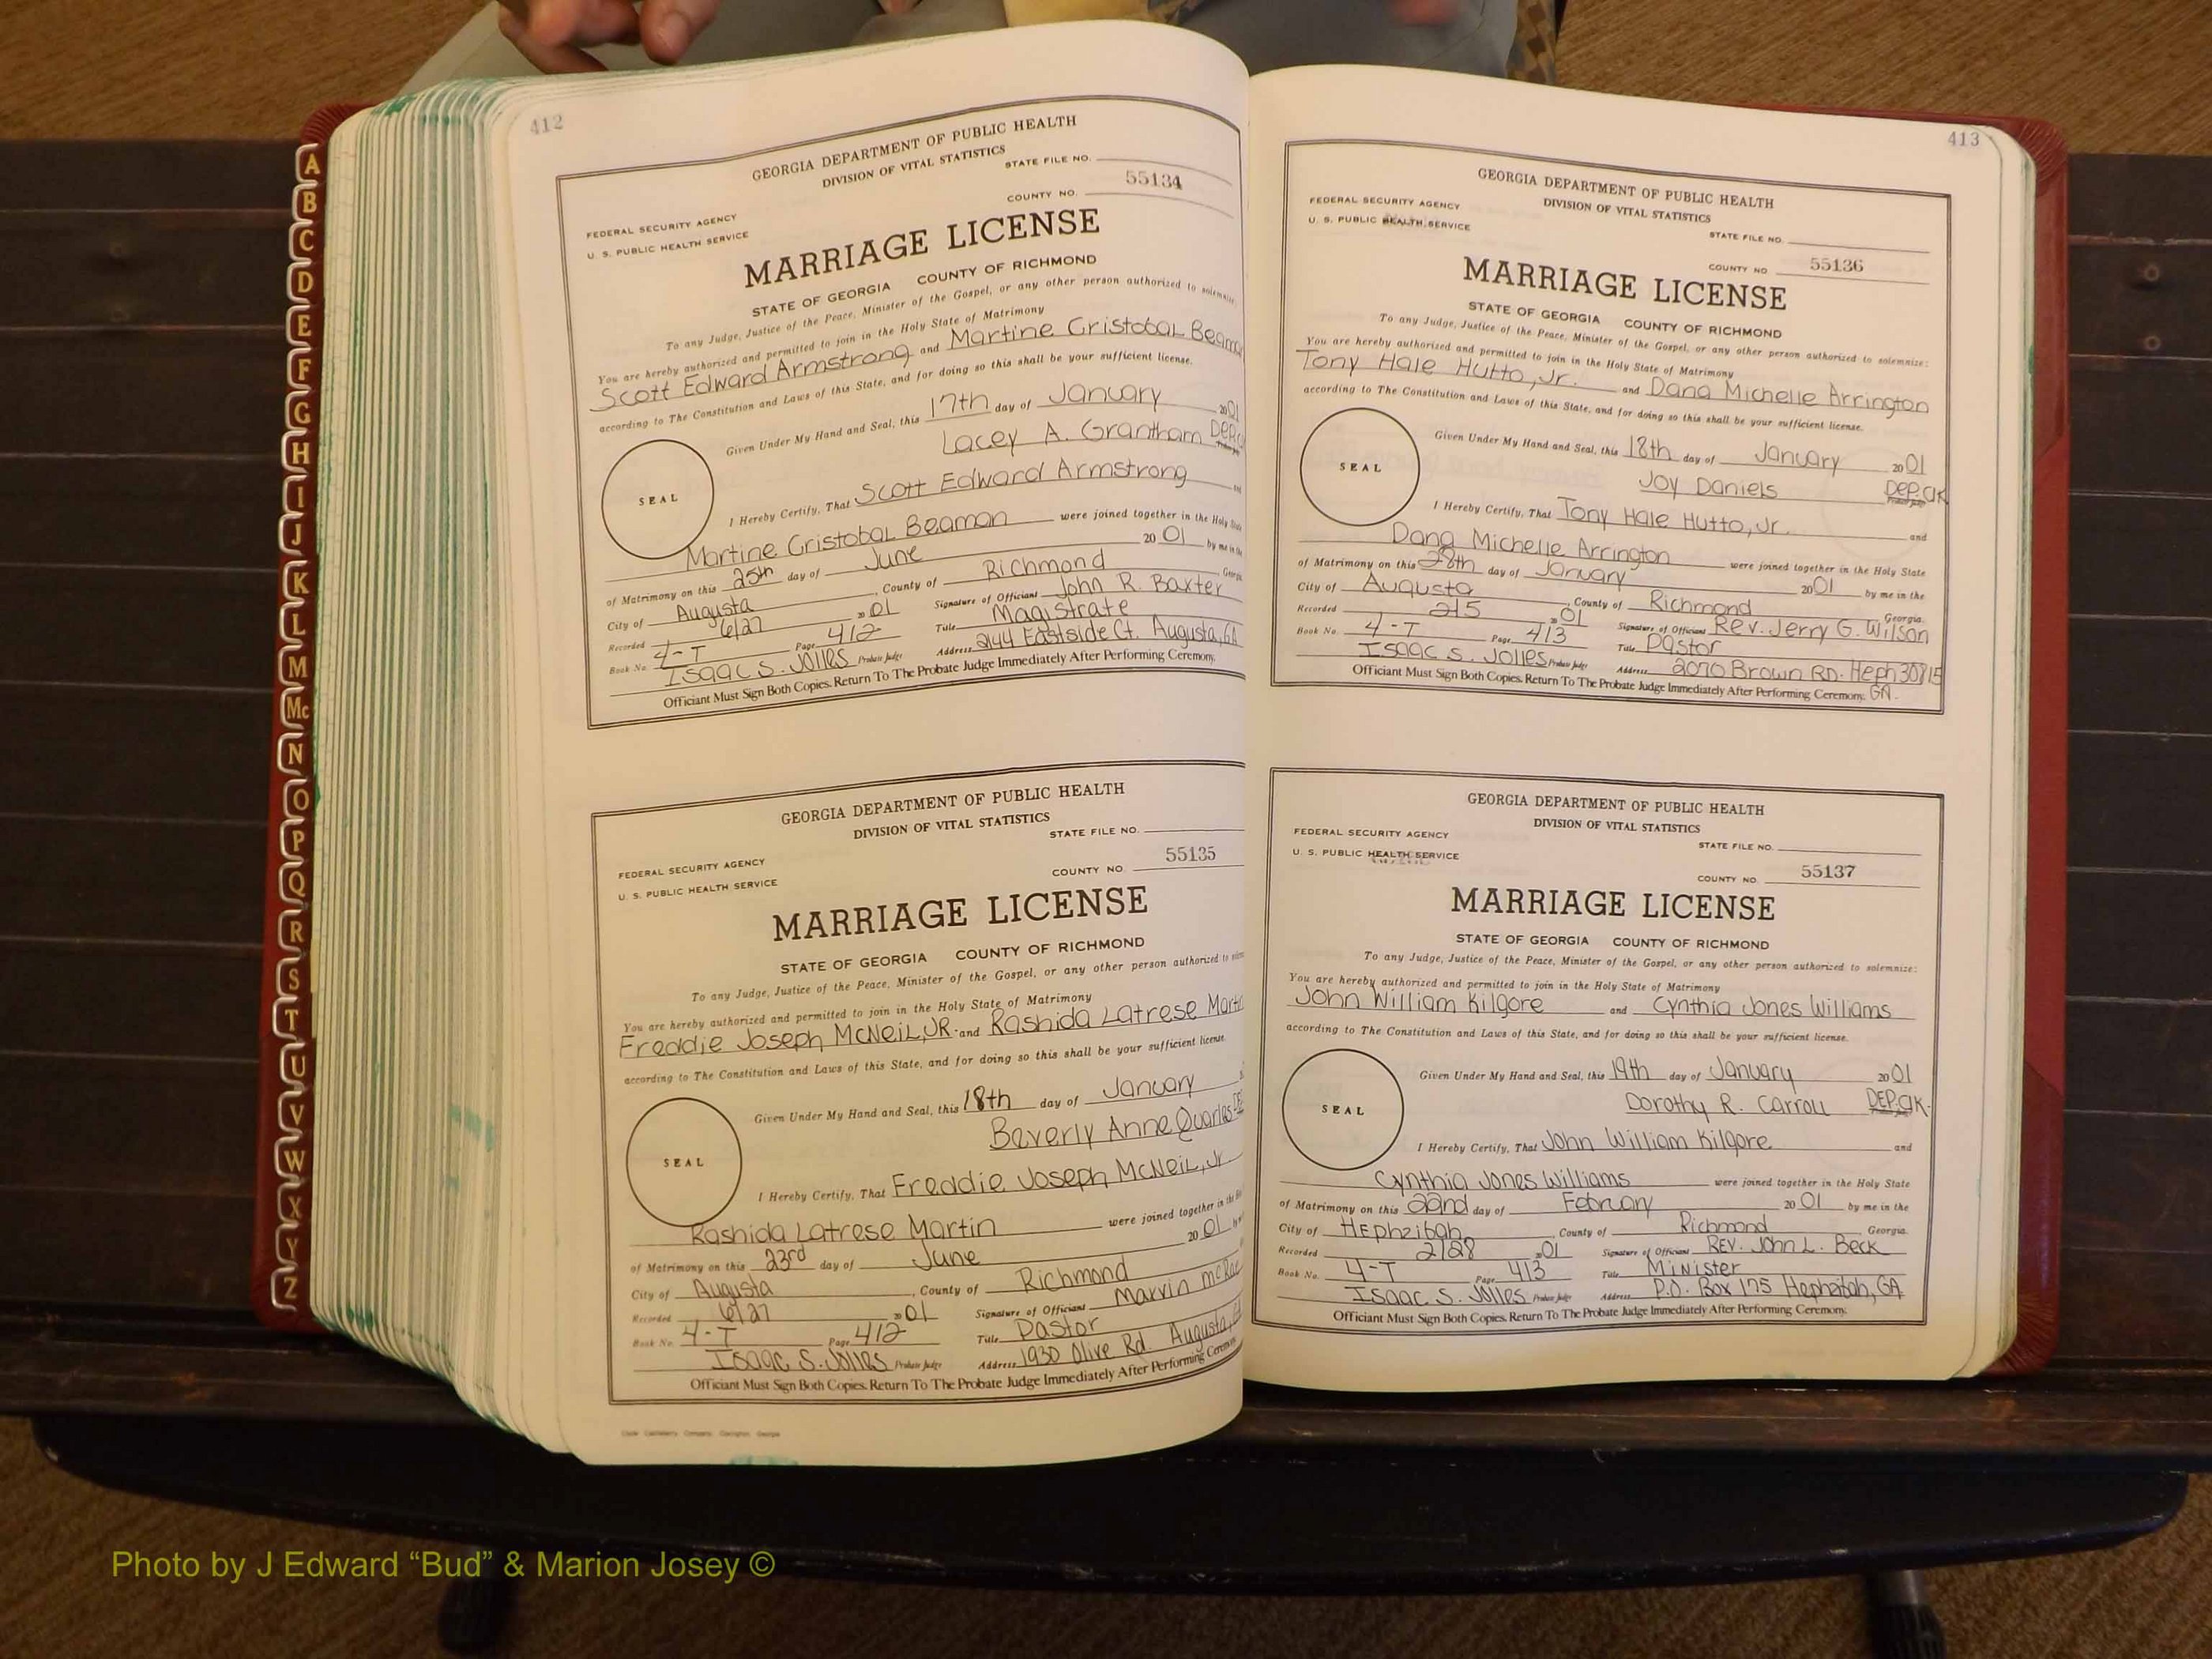 A
B
C
D
E
F
G
H
I
J
K
L
M
Mc
N
O
P
Q
R
S
T
U
V
W
X
Y
Z
412
GEORGIA DEPARTMENT OF PUBLIC HEALTH
DIVISION OF VITAL STATISTICS
STATE FILE NO.
FEDERAL SECURITY AGENCY
U. S. PUBLIC HEALTH SERVICE
COUNTY NO. 55134
MARRIAGE LICENSE
STATE OF GEORGIA COUNTY OF RICHMOND
To any Judge, Justice of the Peace, Minister of the Gospel, or any other person authorized to solemnize
You are hereby authorized and permitted to join in the Holy State of Matrimony
Scott Edward Armstrong and Martine Cristobal
according to The Constitution and Laws of this State, and for doing so this shall be your sufficient license.
Given Under My Hand and Seal, this 17th day of January 2001
Lacey A. Grantham
SEAL
I Hereby Certify, That Scott Edward Armstrong and
Martine Cristobal Beaman were joined together in the Holy
of Matrimony on this 25th day of June 20 01 by me in the
City of Augusta, County of Richmond
Recorded 6/27 2001 Signature of Officiant John R. Baxter
Book No. 4-T Page 412 Title Magistrate
Isaac S. Jolles Probate Judge Address 2144 Eastside Ct. Augusta, GA
Officiant Must Sign Both Copies. Return To The Probate Judge Immediately After Performing Ceremony.
GEORGIA DEPARTMENT OF PUBLIC HEALTH
DIVISION OF VITAL STATISTICS
STATE FILE NO.
FEDERAL SECURITY AGENCY
U. S. PUBLIC HEALTH SERVICE
COUNTY NO. 55135
MARRIAGE LICENSE
STATE OF GEORGIA COUNTY OF RICHMOND
To any Judge, Justice of the Peace, Minister of the Gospel, or any other person authorized to
You are hereby authorized and permitted to join in the Holy State of Matrimony
Freddie Joseph McNeil, JR. and Rashida Latrese
according to The Constitution and Laws of this State, and for doing so this shall be your sufficient license.
Given Under My Hand and Seal, this 18th day of January
Beverly Anne Quarles
SEAL
I Hereby Certify, That Freddie Joseph McNeil, Jr.
Rashida Latrese Martin were joined together in the
of Matrimony on this 23rd day of June 20 01
City of Augusta, County of Richmond
Recorded 6/27 2001 Signature of Officiant Marvin McRae
Book No. 4-T Page 412 Title Pastor
Isaac S. Jolles Probate Judge Address 1930 Olive Rd. Augusta,
Officiant Must Sign Both Copies. Return To The Probate Judge Immediately After Performing Ceremony
413
GEORGIA DEPARTMENT OF PUBLIC HEALTH
DIVISION OF VITAL STATISTICS
FEDERAL SECURITY AGENCY
U. S. PUBLIC HEALTH SERVICE
STATE FILE NO.
COUNTY NO 55136
MARRIAGE LICENSE
STATE OF GEORGIA COUNTY OF RICHMOND
To any Judge, Justice of the Peace, Minister of the Gospel, or any other person authorized to solemnize:
You are hereby authorized and permitted to join in the Holy State of Matrimony
Tony Hale Hutto, Jr. and Dana Michelle Arrington
according to The Constitution and Laws of this State, and for doing so this shall be your sufficient license.
Given Under My Hand and Seal, this 18th day of January 20 01
Joy Daniels Dep. Clk
SEAL
I Hereby Certify, That Tony Hale Hutto, Jr. and
Dana Michelle Arrington were joined together in the Holy State
of Matrimony on this 28th day of January 20 01 by me in the
City of Augusta, County of Richmond Georgia.
Recorded 2/5 2001 Signature of Officiant Rev. Jerry G. Wilson
Book No. 4-T Page 413 Title Pastor
Isaac S. Jolles Probate Judge Address 2070 Brown RD. Heph 30815
Officiant Must Sign Both Copies. Return To The Probate Judge Immediately After Performing Ceremony. GA.
GEORGIA DEPARTMENT OF PUBLIC HEALTH
DIVISION OF VITAL STATISTICS
FEDERAL SECURITY AGENCY
U. S. PUBLIC HEALTH SERVICE
STATE FILE NO.
COUNTY NO. 55137
MARRIAGE LICENSE
STATE OF GEORGIA COUNTY OF RICHMOND
To any Judge, Justice of the Peace, Minister of the Gospel, or any other person authorized to solemnize:
You are hereby authorized and permitted to join in the Holy State of Matrimony
John William Kilgore and Cynthia Jones Williams
according to The Constitution and Laws of this State, and for doing so this shall be your sufficient license.
Given Under My Hand and Seal, this 19th day of January 20 01
Dorothy R. Carroll DEP. Clk.
SEAL
I Hereby Certify, That John William Kilgore and
Cynthia Jones Williams were joined together in the Holy State
of Matrimony on this 22nd day of February 20 01 by me in the
City of Hephzibah, County of Richmond Georgia.
Recorded 2/28 2001 Signature of Officiant REV. John L. Beck
Book No. 4-T Page 413 Title Minister
Isaac S. Jolles Probate Judge Address P.O. Box 175 Hephzibah, GA
Officiant Must Sign Both Copies. Return To The Probate Judge Immediately After Performing Ceremony.
Photo by J Edward “Bud” & Marion Josey ©